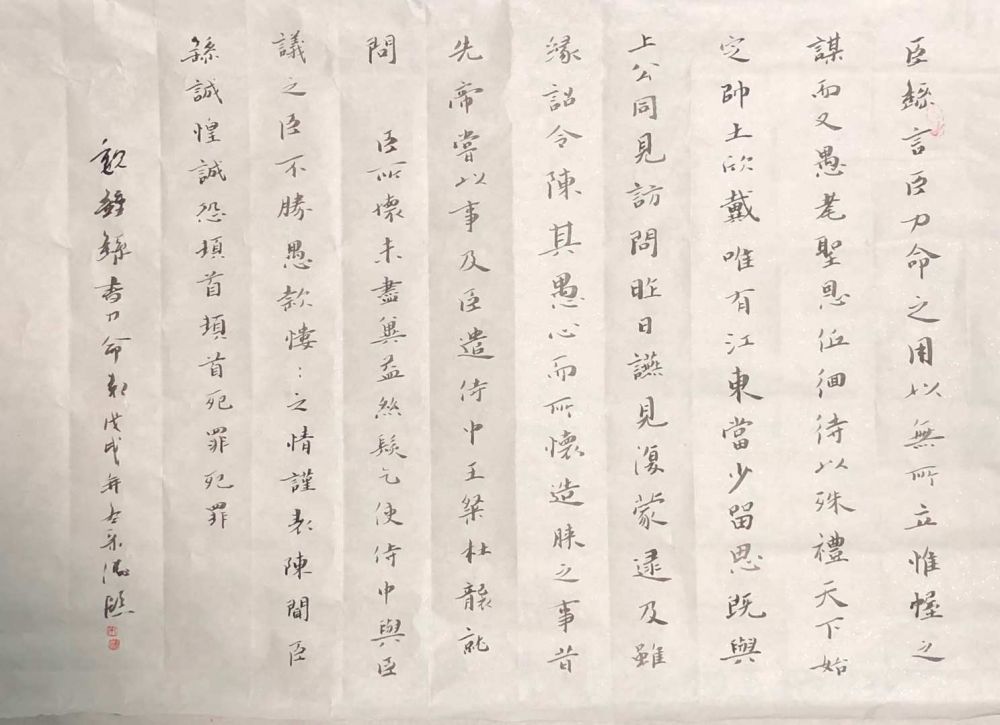 臣繇言臣力命之用以無所立惟幄之
謀而又愚耄聖恩低徊待以殊禮天下始
定帥土欣戴唯有江東當少留思既與
上公同見訪問昨日讌見復蒙逮及雖
緣詔令陳其愚心而所懷造膝之事昔
先帝嘗以事及臣遣侍中王粲杜襲就
問 臣所懷未盡冀益絲髮乞使侍中與臣
議之臣不勝愚款悽:之情謹表陳聞臣
繇誠惶誠恐頓首頓首死罪死罪
鍾繇書力命表戊戌年